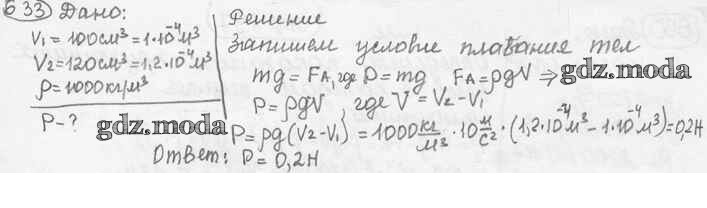 633 Дано:
V₁=100см³=1·10⁻⁴м³
V₂=120см³=1,2·10⁻⁴м³
ρ=1000кг/м³
P-?
Решение
Запишем условие плавания тел
mg=F_A, где P=mg F_A=ρgV ⇒ gdz.moda
P=ρgV где V=V₂-V₁
gdz.moda
P=ρg(V₂-V₁)=1000кг/м³·10м/с²·(1,2·10⁻⁴м³-1·10⁻⁴м³)=0,2Н
Ответ: P=0,2Н